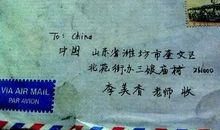 To: China
中国 山东省潍坊市奎文区
北苑街办三娘庙村 261000
李美香 老师 收
VIA AIR MAIL
PAR AVION